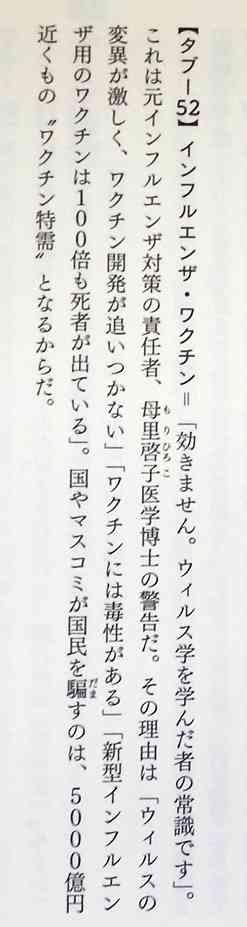 【タブー52】インフルエンザ・ワクチン＝「効きません。ウィルス学を学んだ者の常識です」。
これは元インフルエンザ対策の責任者、母里啓子医学博士の警告だ。その理由は「ウィルスの
変異が激しく、ワクチン開発が追いつかない」「ワクチンには毒性がある」「新型インフルエン
ザ用のワクチンは100倍も死者が出ている」。国やマスコミが国民を騙すのは、5000億円
近くもの〝ワクチン特需〟となるからだ。